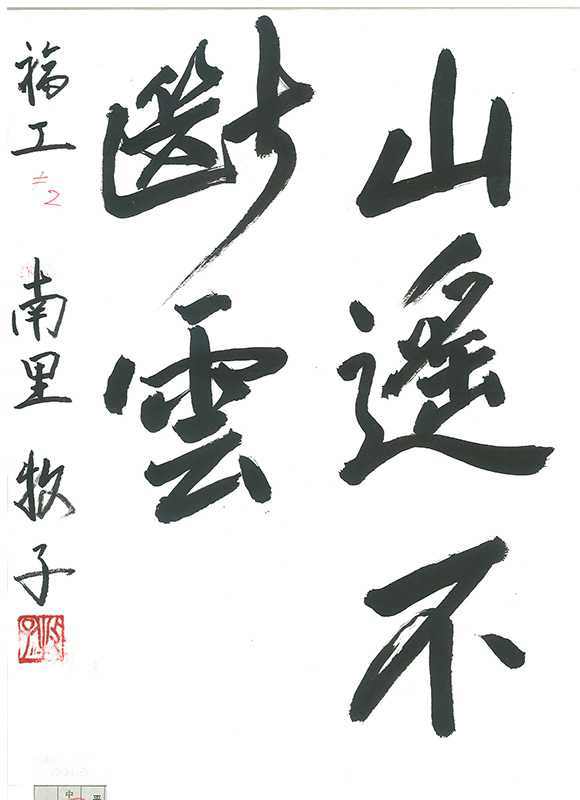 山遥不
斷雲
福工 #2 南里 牧子
中